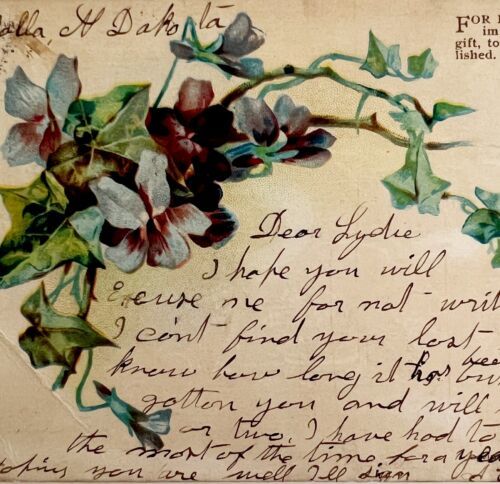 alla N Dakota
FOR
im
gift, to
lished.
Dear Lydie
I hope you will
Excuse me for not writ
I cant find your last
know how long it has
gotton you and will
or two. I have had to
the most of the time for a yea
hoping you are well I'll sign